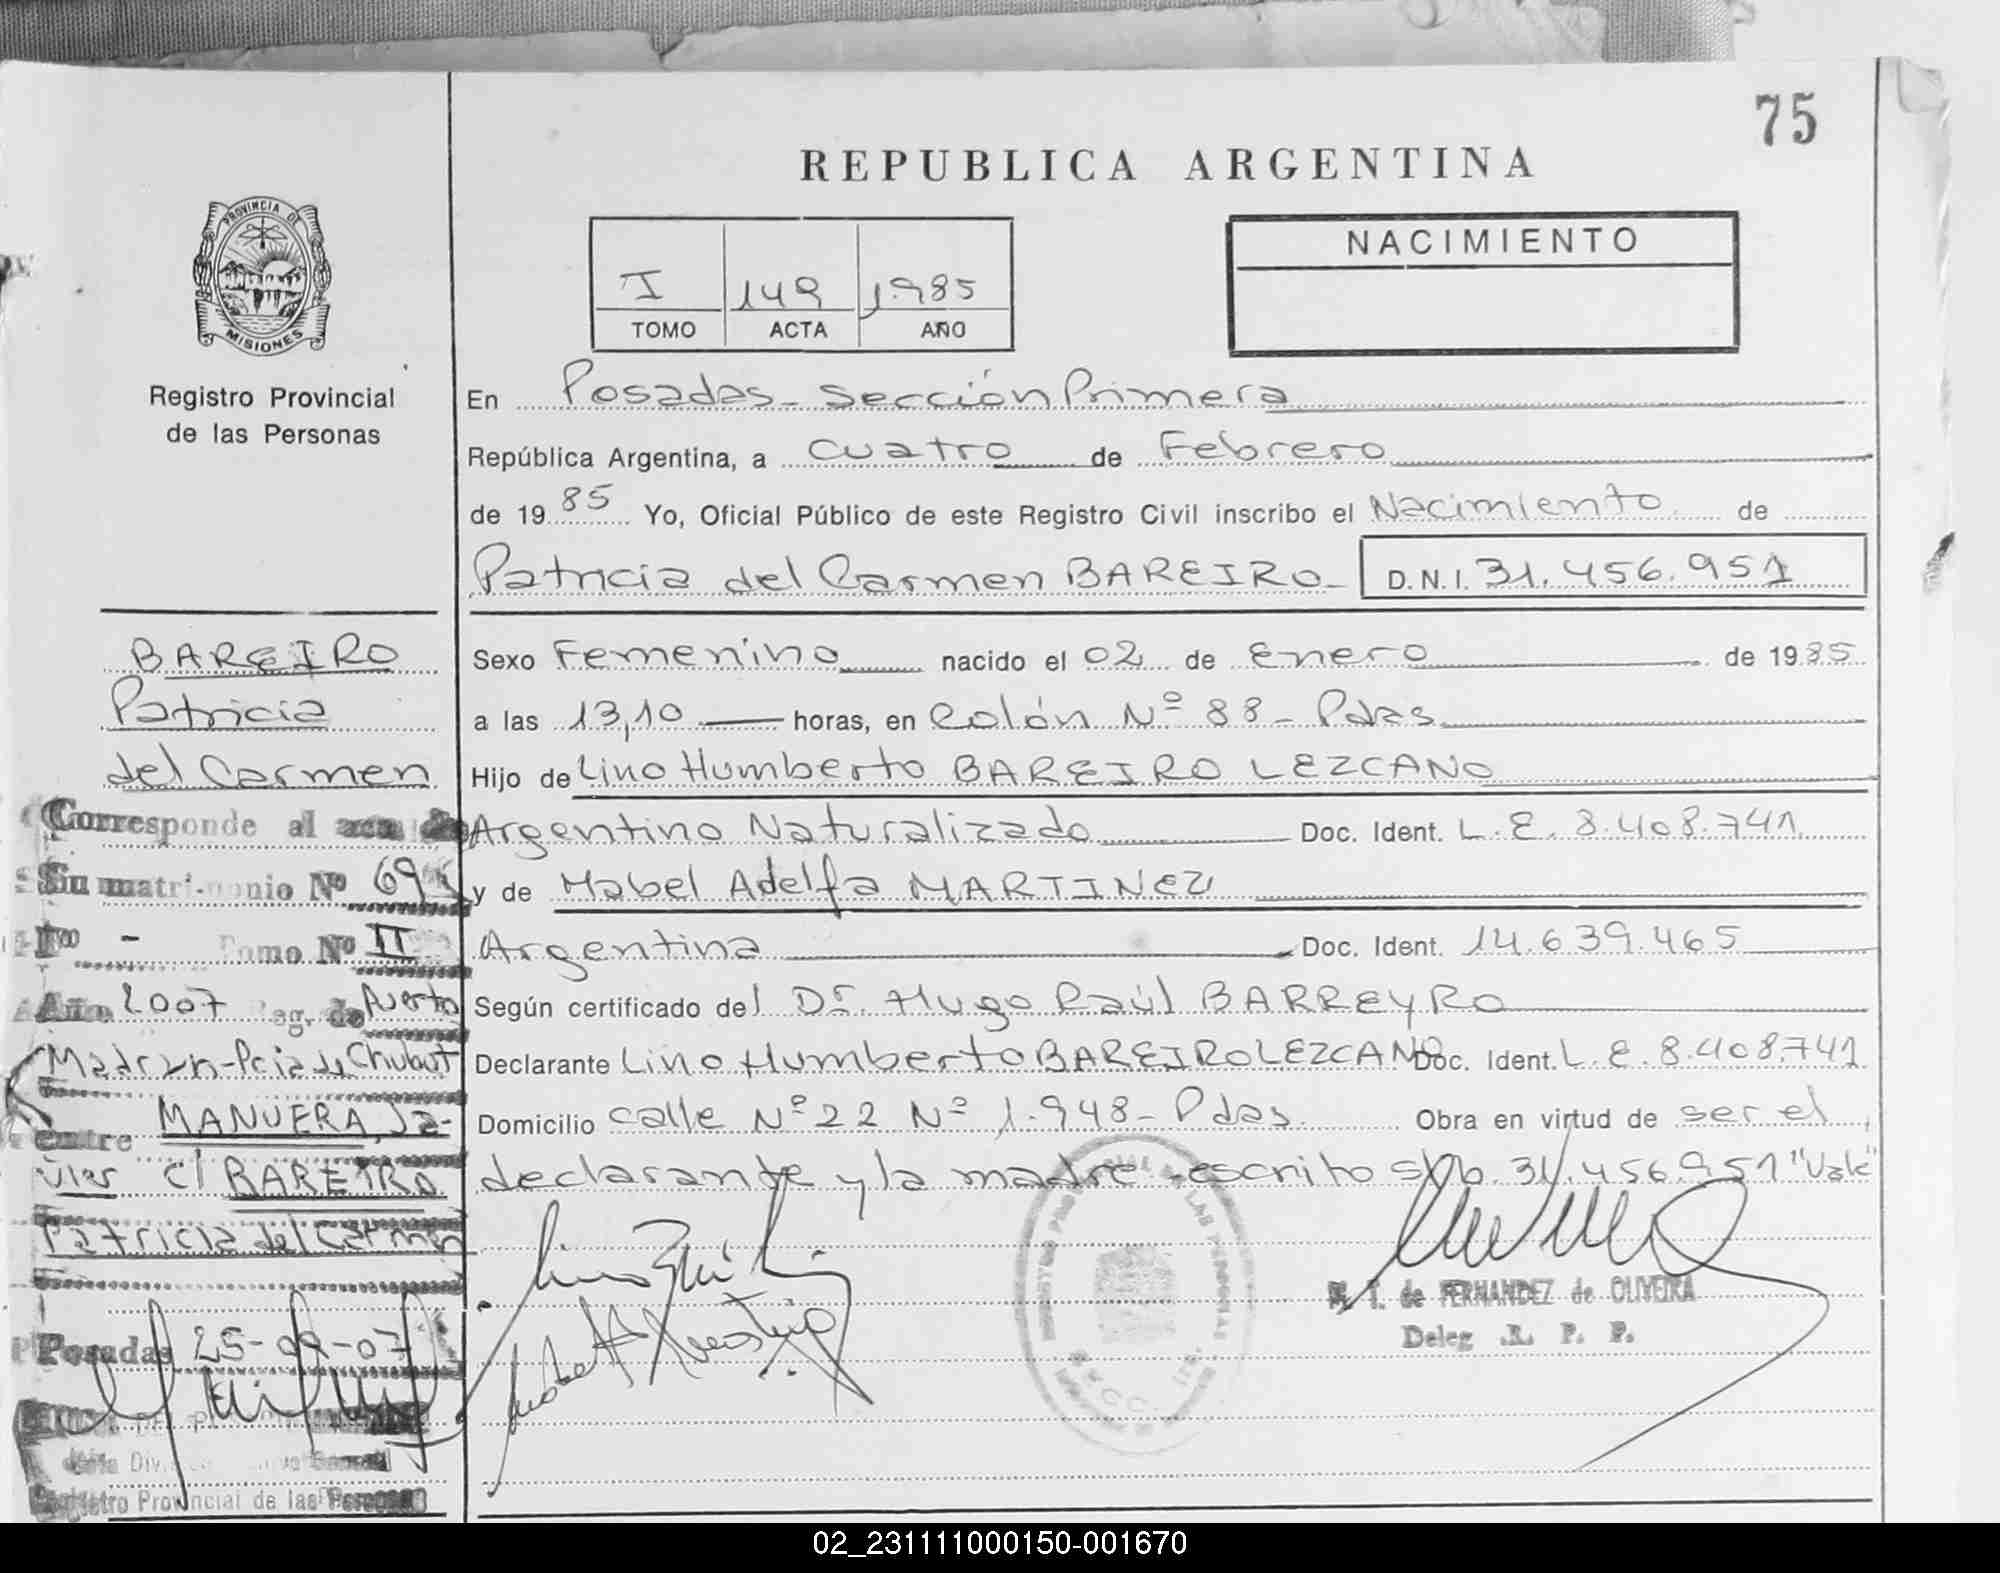 75
REPUBLICA ARGENTINA
PROVINCIA DE
MISIONES
Registro Provincial
de las Personas
I 149 1.985
TOMO ACTA AÑO
NACIMIENTO
En Posadas - Sección Primera
República Argentina, a cuatro de Febrero
de 1985 Yo, Oficial Público de este Registro Civil inscribo el Nacimiento de
Patricia del Carmen BAREIRO - D.N.I. 31.456.951
Sexo Femenino nacido el 02 de Enero de 1985
a las 13,10 horas, en Colón Nº 88 - Pdas.
Hijo de Lino Humberto BAREIRO LEZCANO
Argentino Naturalizado Doc. Ident. L.E. 8.408.741
y de Mabel Adelfa MARTINEZ
Argentina Doc. Ident. 14.639.465
Según certificado del Dr. Hugo Raúl BARREYRO
Declarante Lino Humberto BAREIRO LEZCANO Doc. Ident. L.E. 8.408.741
Domicilio calle Nº 22 Nº 1.948 - Pdas. Obra en virtud de ser el
declarante y la madre - escrito s/b. 31.456.951 "Vale"
M. T. de FERNANDEZ de OLIVEIRA
Deleg. R. P. P.
BAREIRO
Patricia
del Carmen
Corresponde al acta de
Su matrimonio Nº 69
Fº - Tomo Nº II
Año 2007 Reg. de Puerto
Madryn - Pcia de Chubut
entre MANUERA, Ja-
vier c/ BAREIRO
Patricia del Carmen
Posadas 25-09-07
Registro Provincial de las Personas
02_231111000150-001670